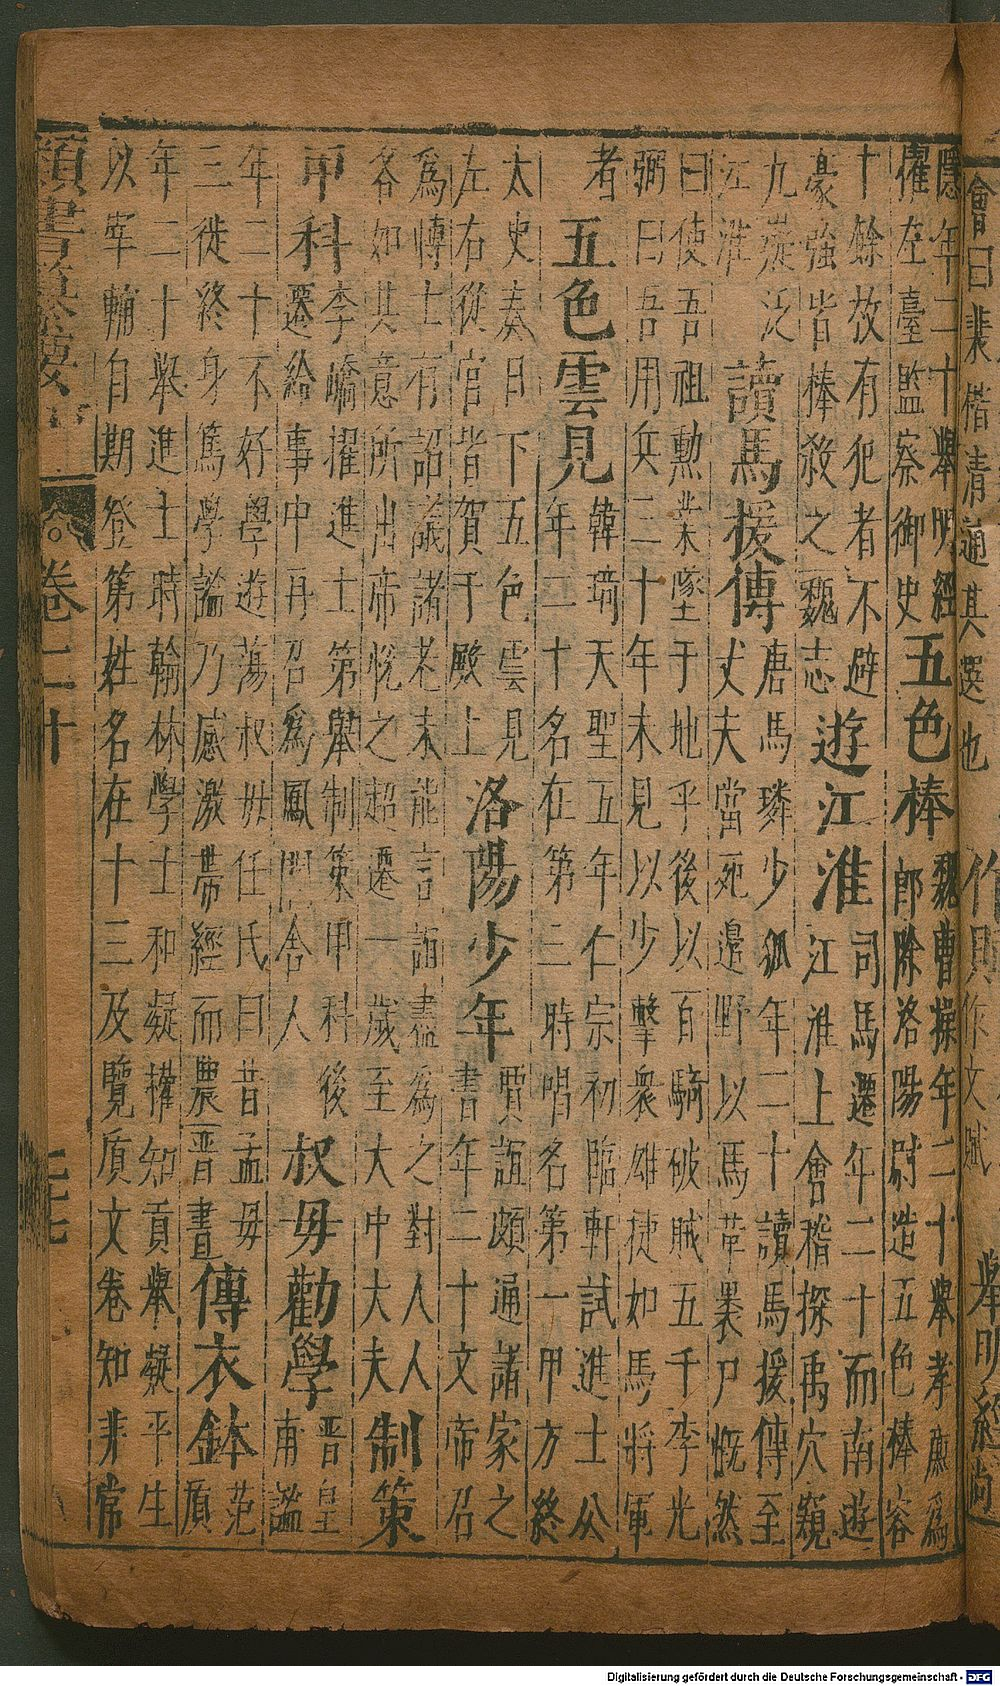 會曰裴楷清通其選也
隱年二十舉明經
擢在臺監察御史
五色棒
魏曹操年二十舉孝廉為
郎除洛陽尉造五色棒容
十餘故有犯者不避
豪強皆棒殺之魏志
遊江淮
司馬遷年二十而南遊
江淮上會稽探禹穴窺
九嶷泛
江淮
讀馬援傳
唐馬璘少孤年二十讀馬援傳至
丈夫當死邊野以馬革裹尸慨然
曰使吾祖勲業墜于地乎後以百騎破賊五千李光
弼曰吾用兵三十年未見以少擊衆雄捷如馬將軍
者
五色雲見
韓琦天聖五年仁宗初臨軒試進士公
年二十名在第三時唱名第一甲方終
太史奏日下五色雲見
左右從官皆賀于殿上
洛陽少年
賈誼頗通諸家之
書年二十文帝召
為博士有詔議諸老未能言誼盡為之對人人
各如其意所出帝悅之超遷一歲至大中大夫
制策
甲科
李嶠擢進士第舉制策甲科後
遷給事中再召為鳳閣舍人
叔毋勸學
晉皇
甫謐
年二十不好學遊蕩叔毋任氏曰昔孟毋
三徙終身篤學謐乃感激帶經而農晉書
傳衣鉢
范
質
年二十舉進士時翰林學士和凝權知貢舉凝平生
以宰輔自期登第姓名在十三及覽質文卷知非常
類書纂要
卷二十
Digitalisierung gefördert durch die Deutsche Forschungsgemeinschaft - DFG